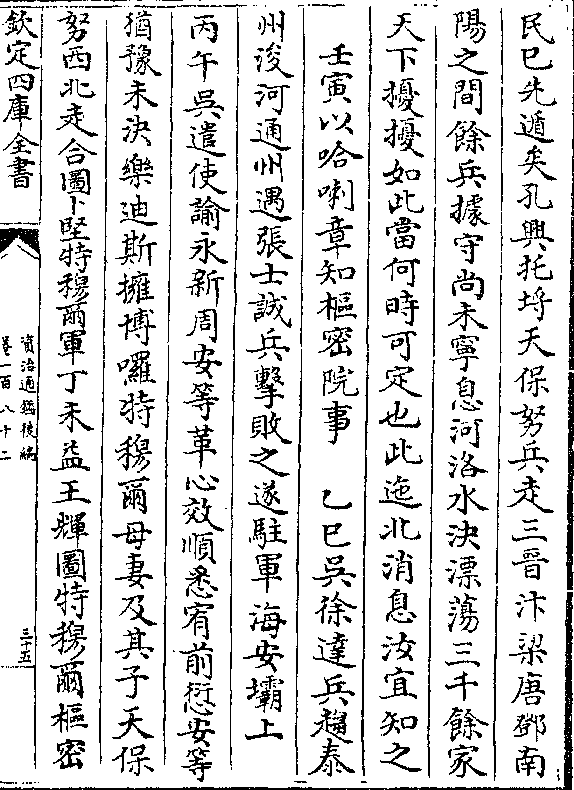 民已先遁矣孔興托埒天保努兵走三晉汴梁唐鄧南
陽之間餘兵據守尚未寧息河洛水決漂蕩三千餘家
天下擾擾如此當何時可定也此迤北消息汝宜知之
壬寅以哈喇章知樞密院事　乙巳吳徐達兵趨泰
州浚河通州遇張士誠兵擊敗之遂駐軍海安壩上
丙午吳遣使諭永新周安等革心效順悉宥前愆安等
猶豫未決樂迪斯擁博囉特穆爾母妻及其子天保
努西北走合圖卜堅特穆爾軍丁未益王輝圖特穆爾樞密
欽定四庫全書
資治通鑑後編
卷一百八十二
三十五